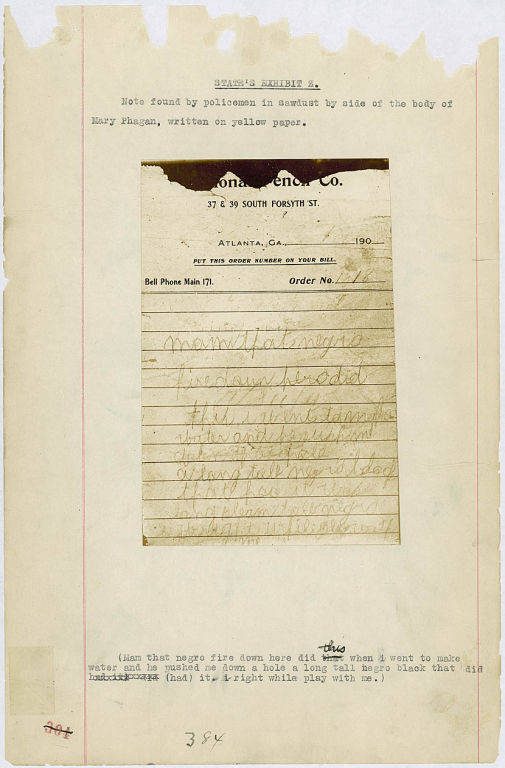 STATE'S EXHIBIT Z.
Note found by policemen in sawdust by side of the body of
Mary Phagan, written on yellow paper.
Co.
37 & 39 SOUTH FORSYTH ST.
ATLANTA, GA., 190
PUT THIS ORDER NUMBER ON YOUR BILL.
Bell Phone Main 171. Order No.
mam that negro
down here did
this i went to make
water and he push me
a long tall negro black
that hoo it wase
long sleam tall negro
i wright while play with
me
this
(Mam that negro fire down here did that when i went to make
water and he pushed me down a hole a long tall negro black that did
(had) it. i right while play with me.)
384